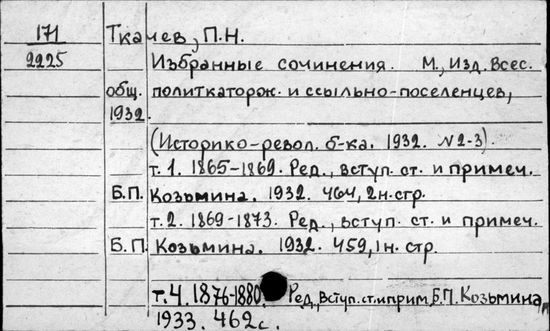 171 Ткачев, П.Н.
2225 Избранные сочинения. М., Изд. Всес.
общ. политкаторж. и ссыльно-поселенцев,
1932.
(Историко-револ. б-ка. 1932. №2-3).
т. 1. 1865-1869. Ред., вступ. ст. и примеч.
Б.П. Козьмина. 1932. 464, 2н.стр.
т.2. 1869-1873. Ред., вступ. ст. и примеч.
Б.П. Козьмина. 1932. 459, 1н. стр.
т.4. 1876-1880. Ред., Вступ. ст. и прим. Б.П. Козьмина,
1933. 462с.